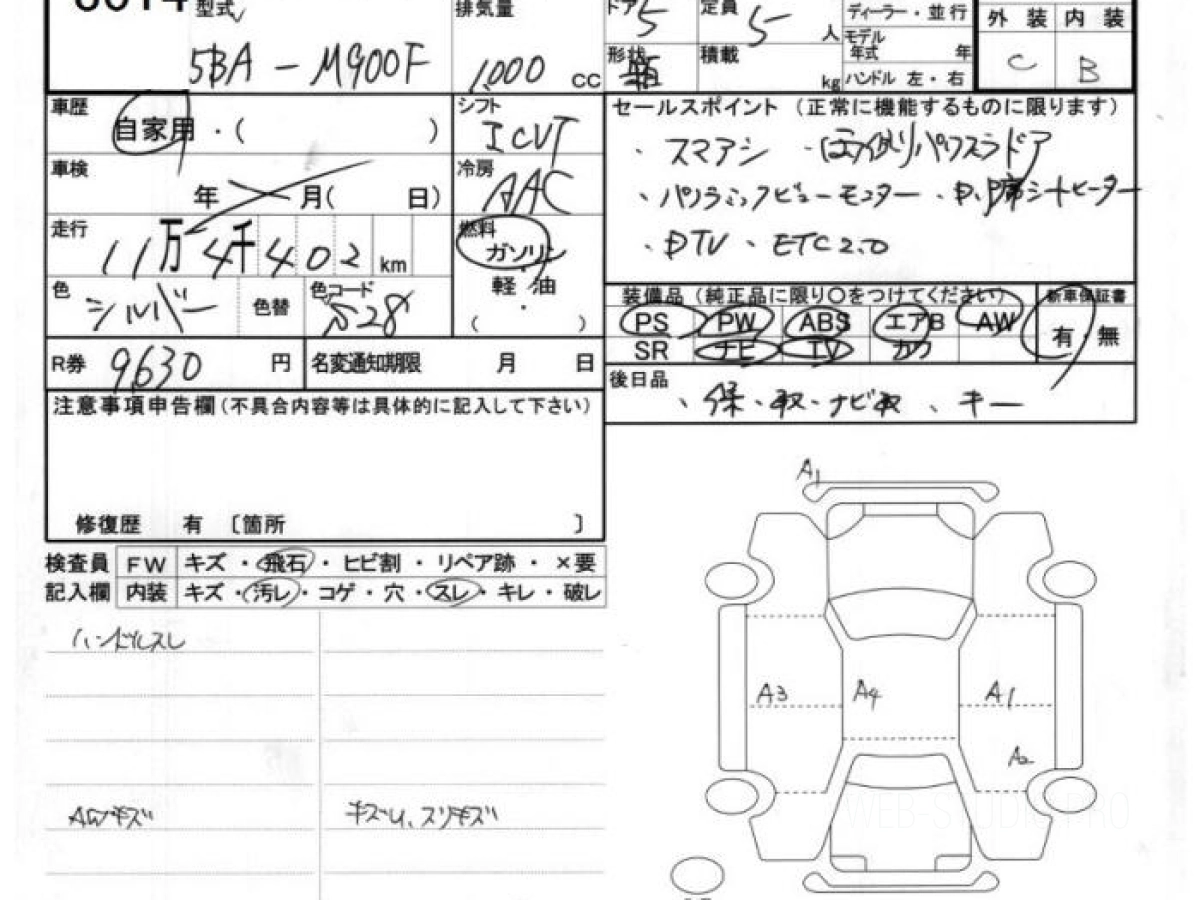 型式 排気量 ドア 5 定員 5 人 ディーラー・並行 外装 内装
5BA-M900F 1,000 cc モデル年式 年
形状 箱 積載 kg ハンドル 左・右 C B
車歴 自家用・( ) シフト ICVT セールスポイント (正常に機能するものに限ります)
・スマアシ
車検 年 月( 日) 冷房 AAC ・パノラミックビューモニター ・D,P席シートヒーター
走行 11万4千402 km 燃料 ガソリン ・DTV ・ETC2.0
・
軽油
( )
色 シルバー 色替 色コード S28
装備品 (純正品に限り〇をつけてください) 新車保証書
PS PW ABS エアB AW 有・無
SR ナビ TV カワ
R券 9630 円 名変通知期限 月 日
後日品 ・保・取・ナビ取 ・キー
注意事項申告欄(不具合内容等は具体的に記入して下さい)
修復歴 有 〔箇所 〕
検査員 FW キズ・飛石・ヒビ割・リペア跡・×要
記入欄 内装 キズ・汚レ・コゲ・穴・スレ・キレ・破レ
ハンドルスレ
AWキズ
A1
A3 A4 A1
A2
WEB-STUDIO.PRO